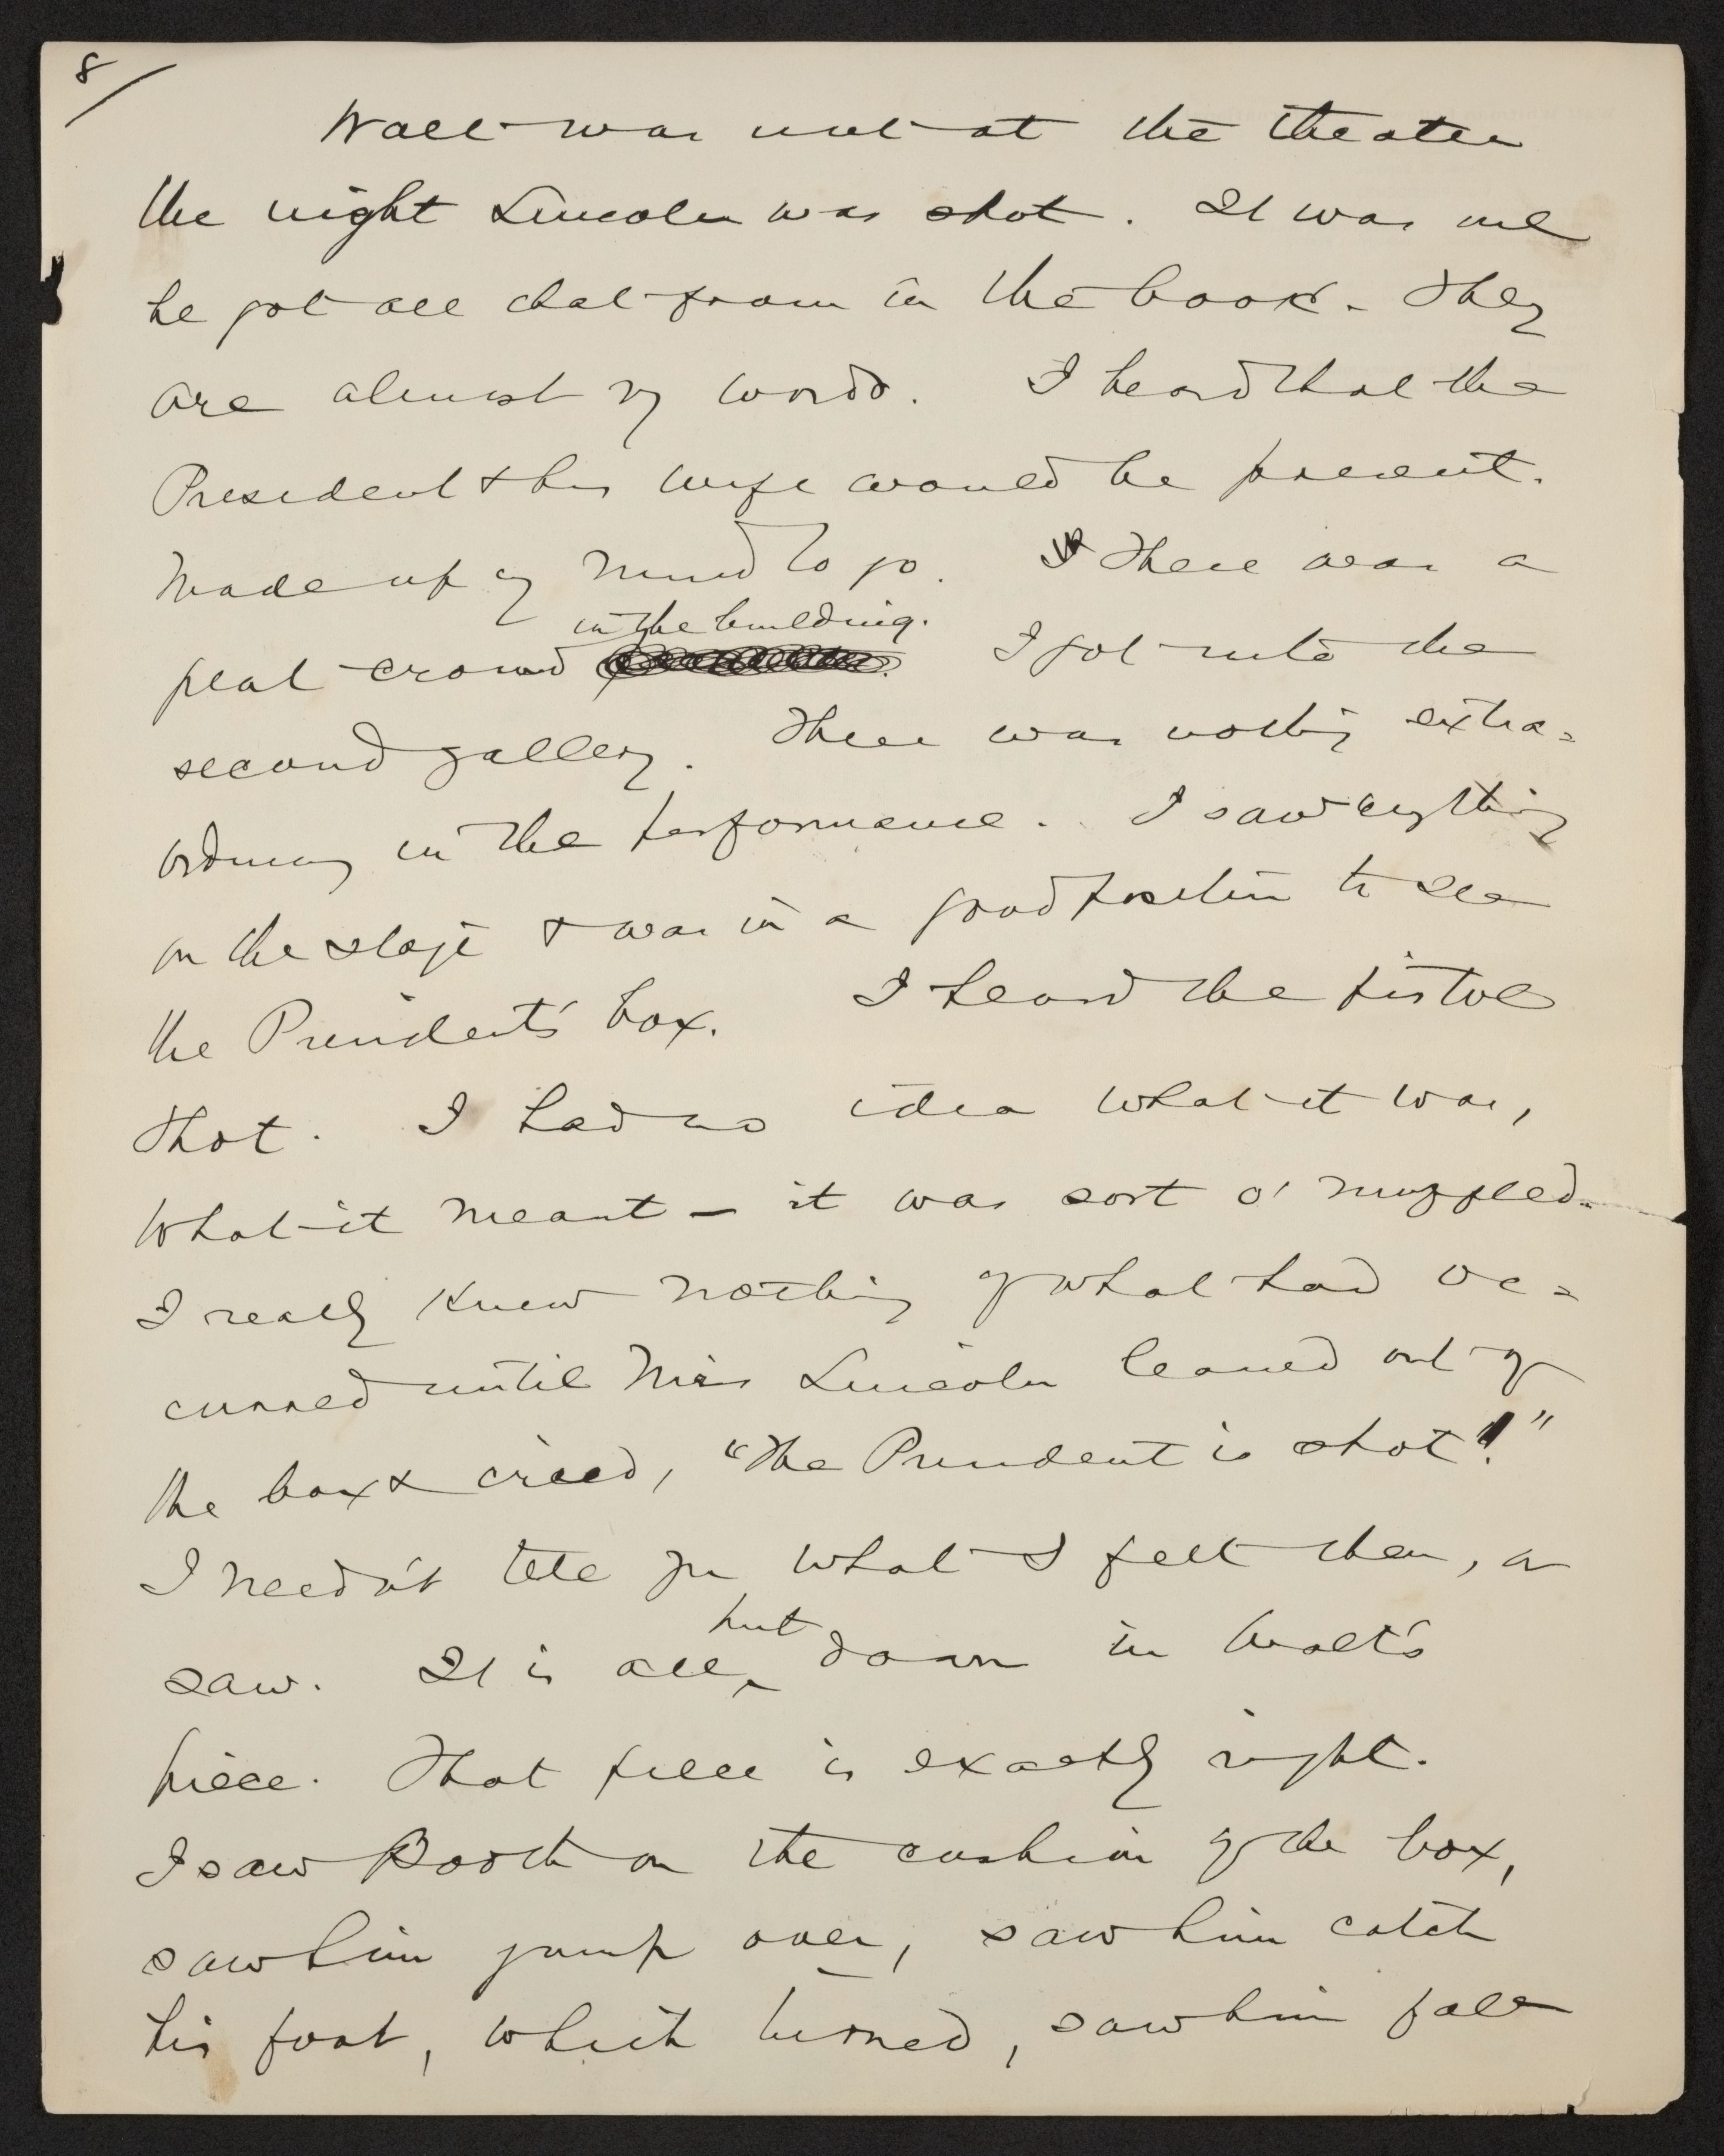 8/
Walt was not at the theater
the night Lincoln was shot. It was me
he got all that from in the book. They
are almost my words. I heard that the
President & his wife would be present.
Made up my mind to go. There was a
in the building.
great crowd I got into the
second gallery. There was nothing extra=
ordinary in the performance. I saw everything
on the stage & was in a good position to see
the President's box. I heard the pistol
shot. I had no idea what it was,
what it meant – it was sort o' muffled.
I really knew nothing of what had oc=
curred until Mrs Lincoln leaned out of
the box & cried, "The President is shot!"
I needn't tell you what I felt then, or
put
saw. It is all down in Walt's
piece. That piece is exactly right.
I saw Booth on the cushion of the box,
saw him jump over, saw him catch
his foot, which turned, saw him fall